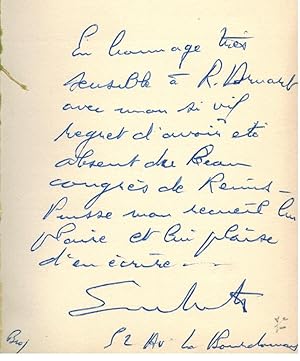 En hommage très
sensible à R.
avec mon si vif
regret d'avoir été
absent du beau
congrès de Reims -
Puisse mon recueil lui
plaire et lui plaise
d'en écrire -
52 Av La Bourdonnais